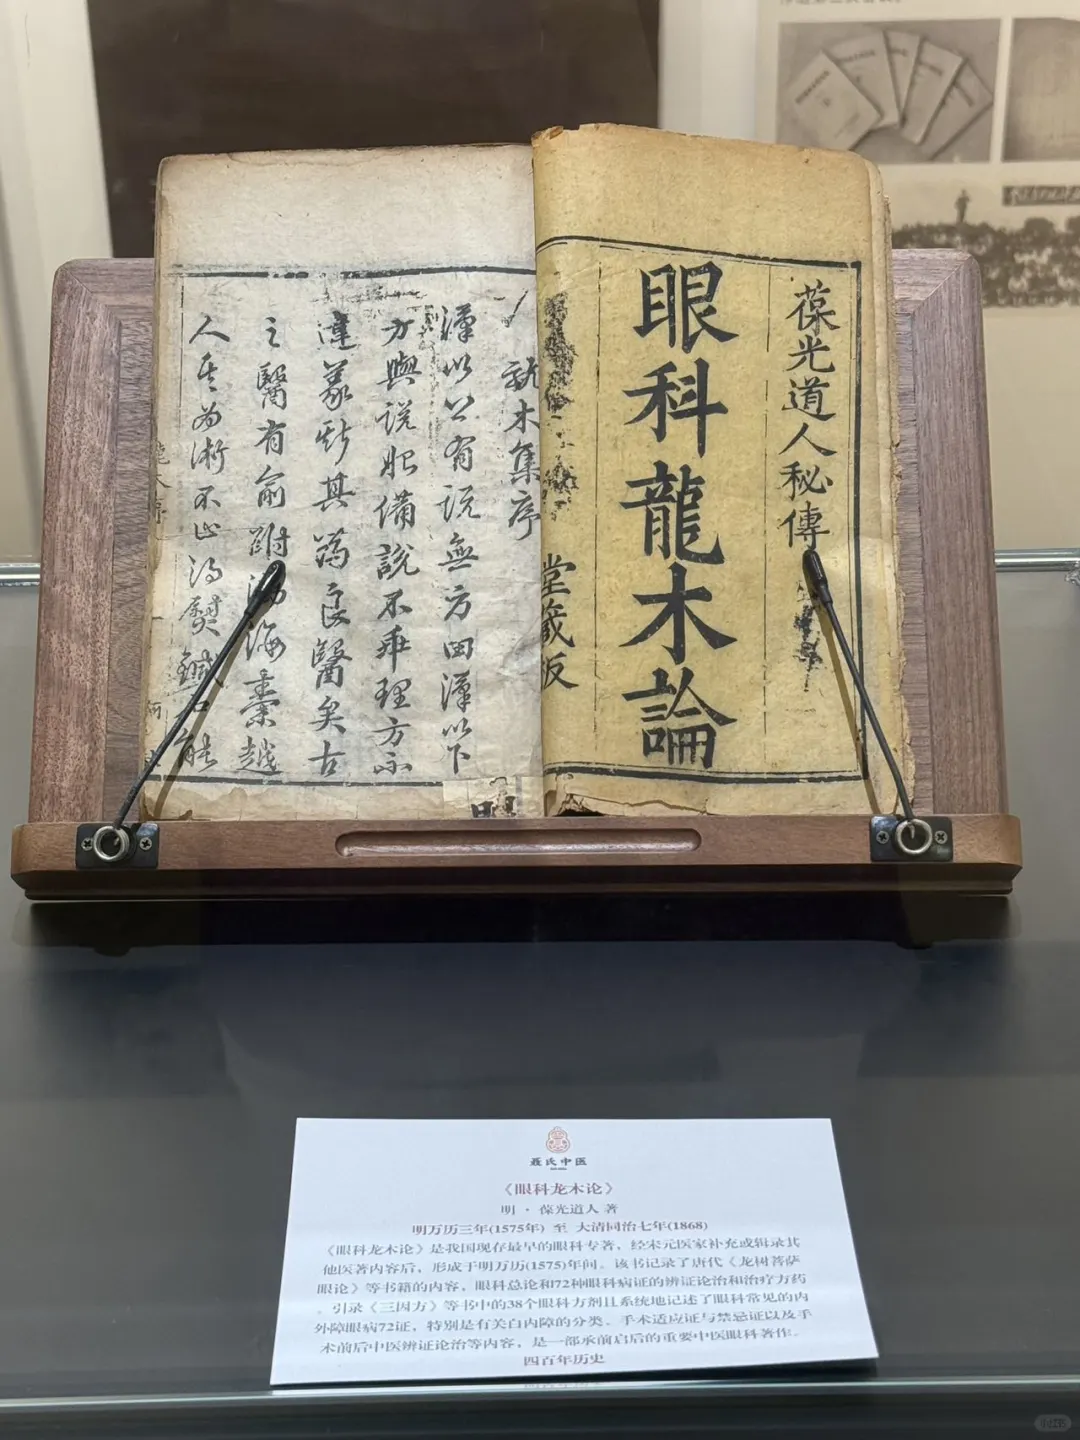 葆光道人秘傳
眼科龍木論
堂藏版
龍木集序
漢以上有説無方由漢以下
方與説肥備説不乖理方不
違義斯其為良醫矣古
之醫有俞跗
海橐越
人其為術不止湯熨鍼石能
聂氏中医
《眼科龙木论》
明 · 葆光道人 著
明万历三年(1575年) 至 大清同治七年(1868)
《眼科龙木论》是我国现存最早的眼科专著，经宋元医家补充或辑录其
他医著内容后，形成于明万历(1575)年间。该书记录了唐代《龙树菩萨
眼论》等书籍的内容，眼科总论和72种眼科病证的辨证论治和治疗方药
。引录《三因方》等书中的38个眼科方剂且系统地记述了眼科常见的内
外障眼病72证，特别是有关白内障的分类、手术适应证与禁忌证以及手
术前后中医辨证论治等内容，是一部承前启后的重要中医眼科著作。
四百年历史